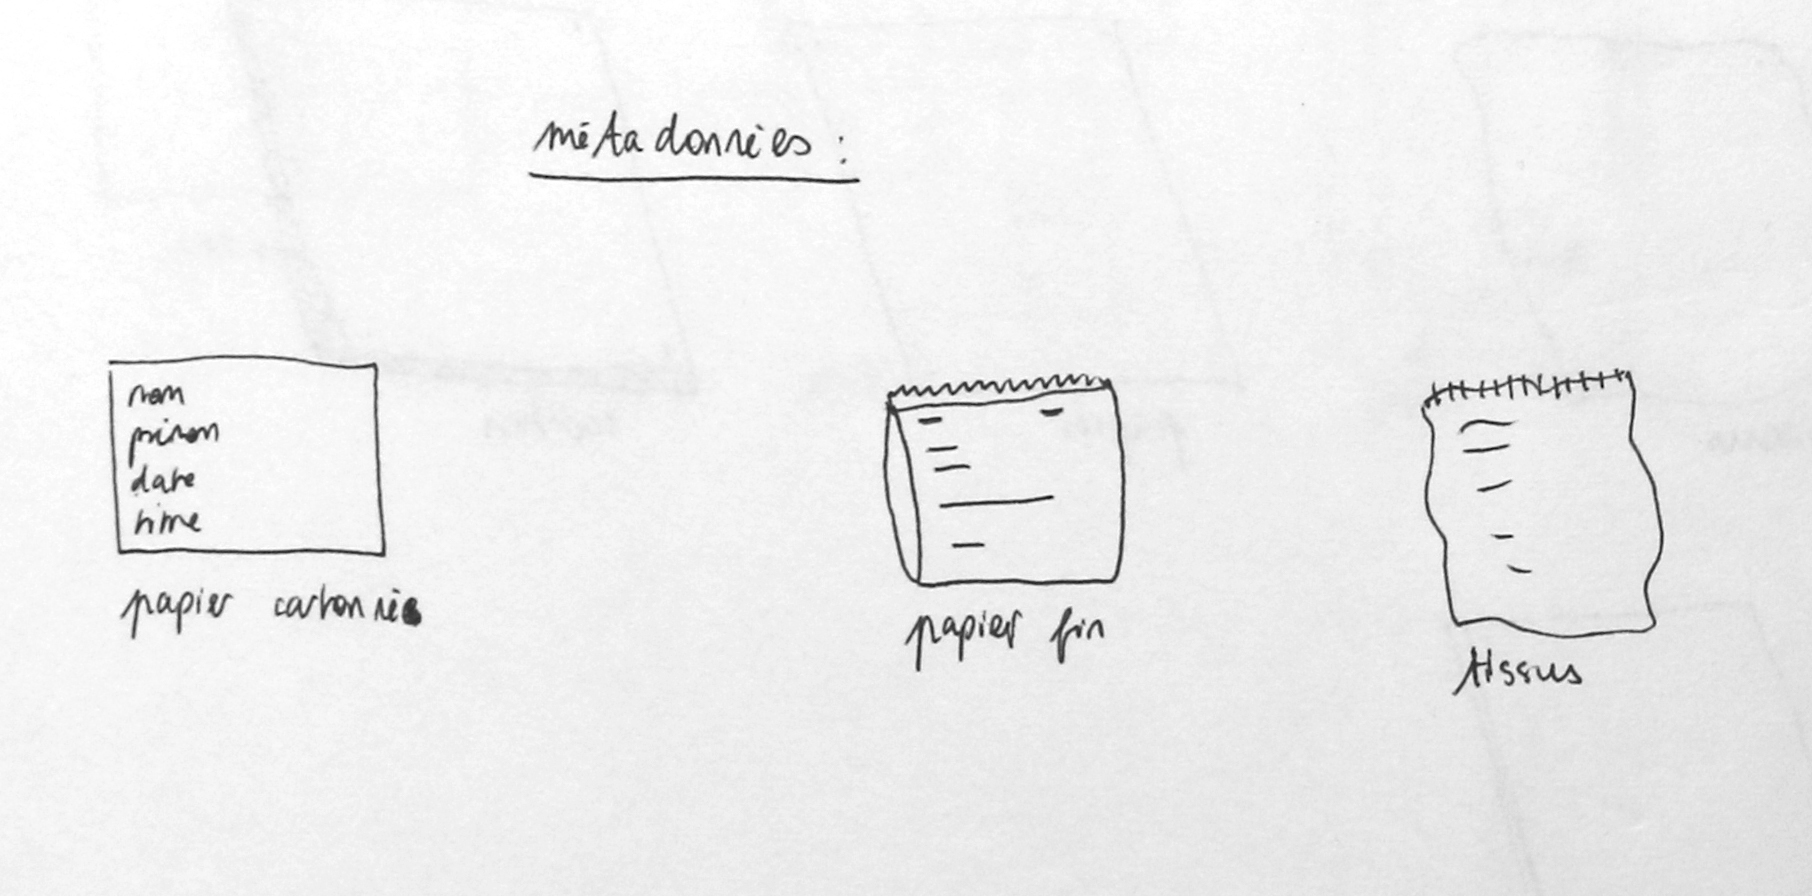 métadonnées :
nom
prénom
date
time
papier cartonné
papier fin
tissus